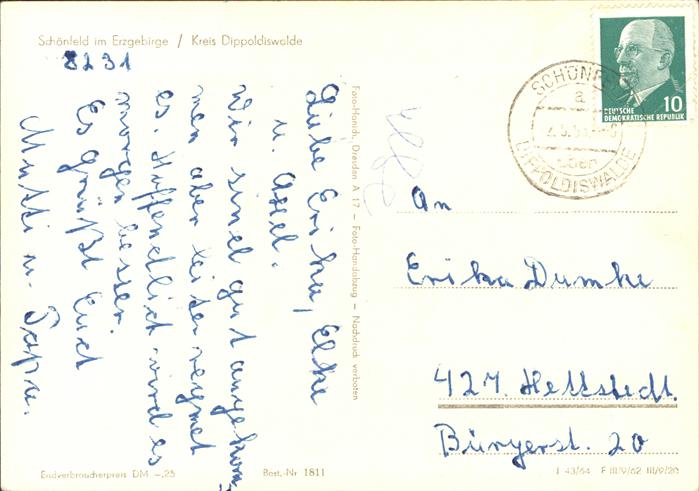 Schönfeld im Erzgebirge / Kreis Dippoldiswalde
8231
Liebe Erika, Elke
u. Axel.
Wir sind gut angekom-
men aber leider regnet
es. Hoffendlich wird es
morgen besser.
Es grüßt Euch
Mutti u. Papa.
Foto-Hanich, Dresden A 17 – Foto-Handabzug – Nachdruck verboten
SCHÖNF
a
über
DIPPOLDISWALDE
10
DEUTSCHE
DEMOKRATISCHE REPUBLIK
An
Erika Dumke
427. Hettstedt.
Bürgerst. 20
Endverbraucherpreis DM –,25
Best.-Nr 1811
J 43/64 F III/9/62 III/9/20